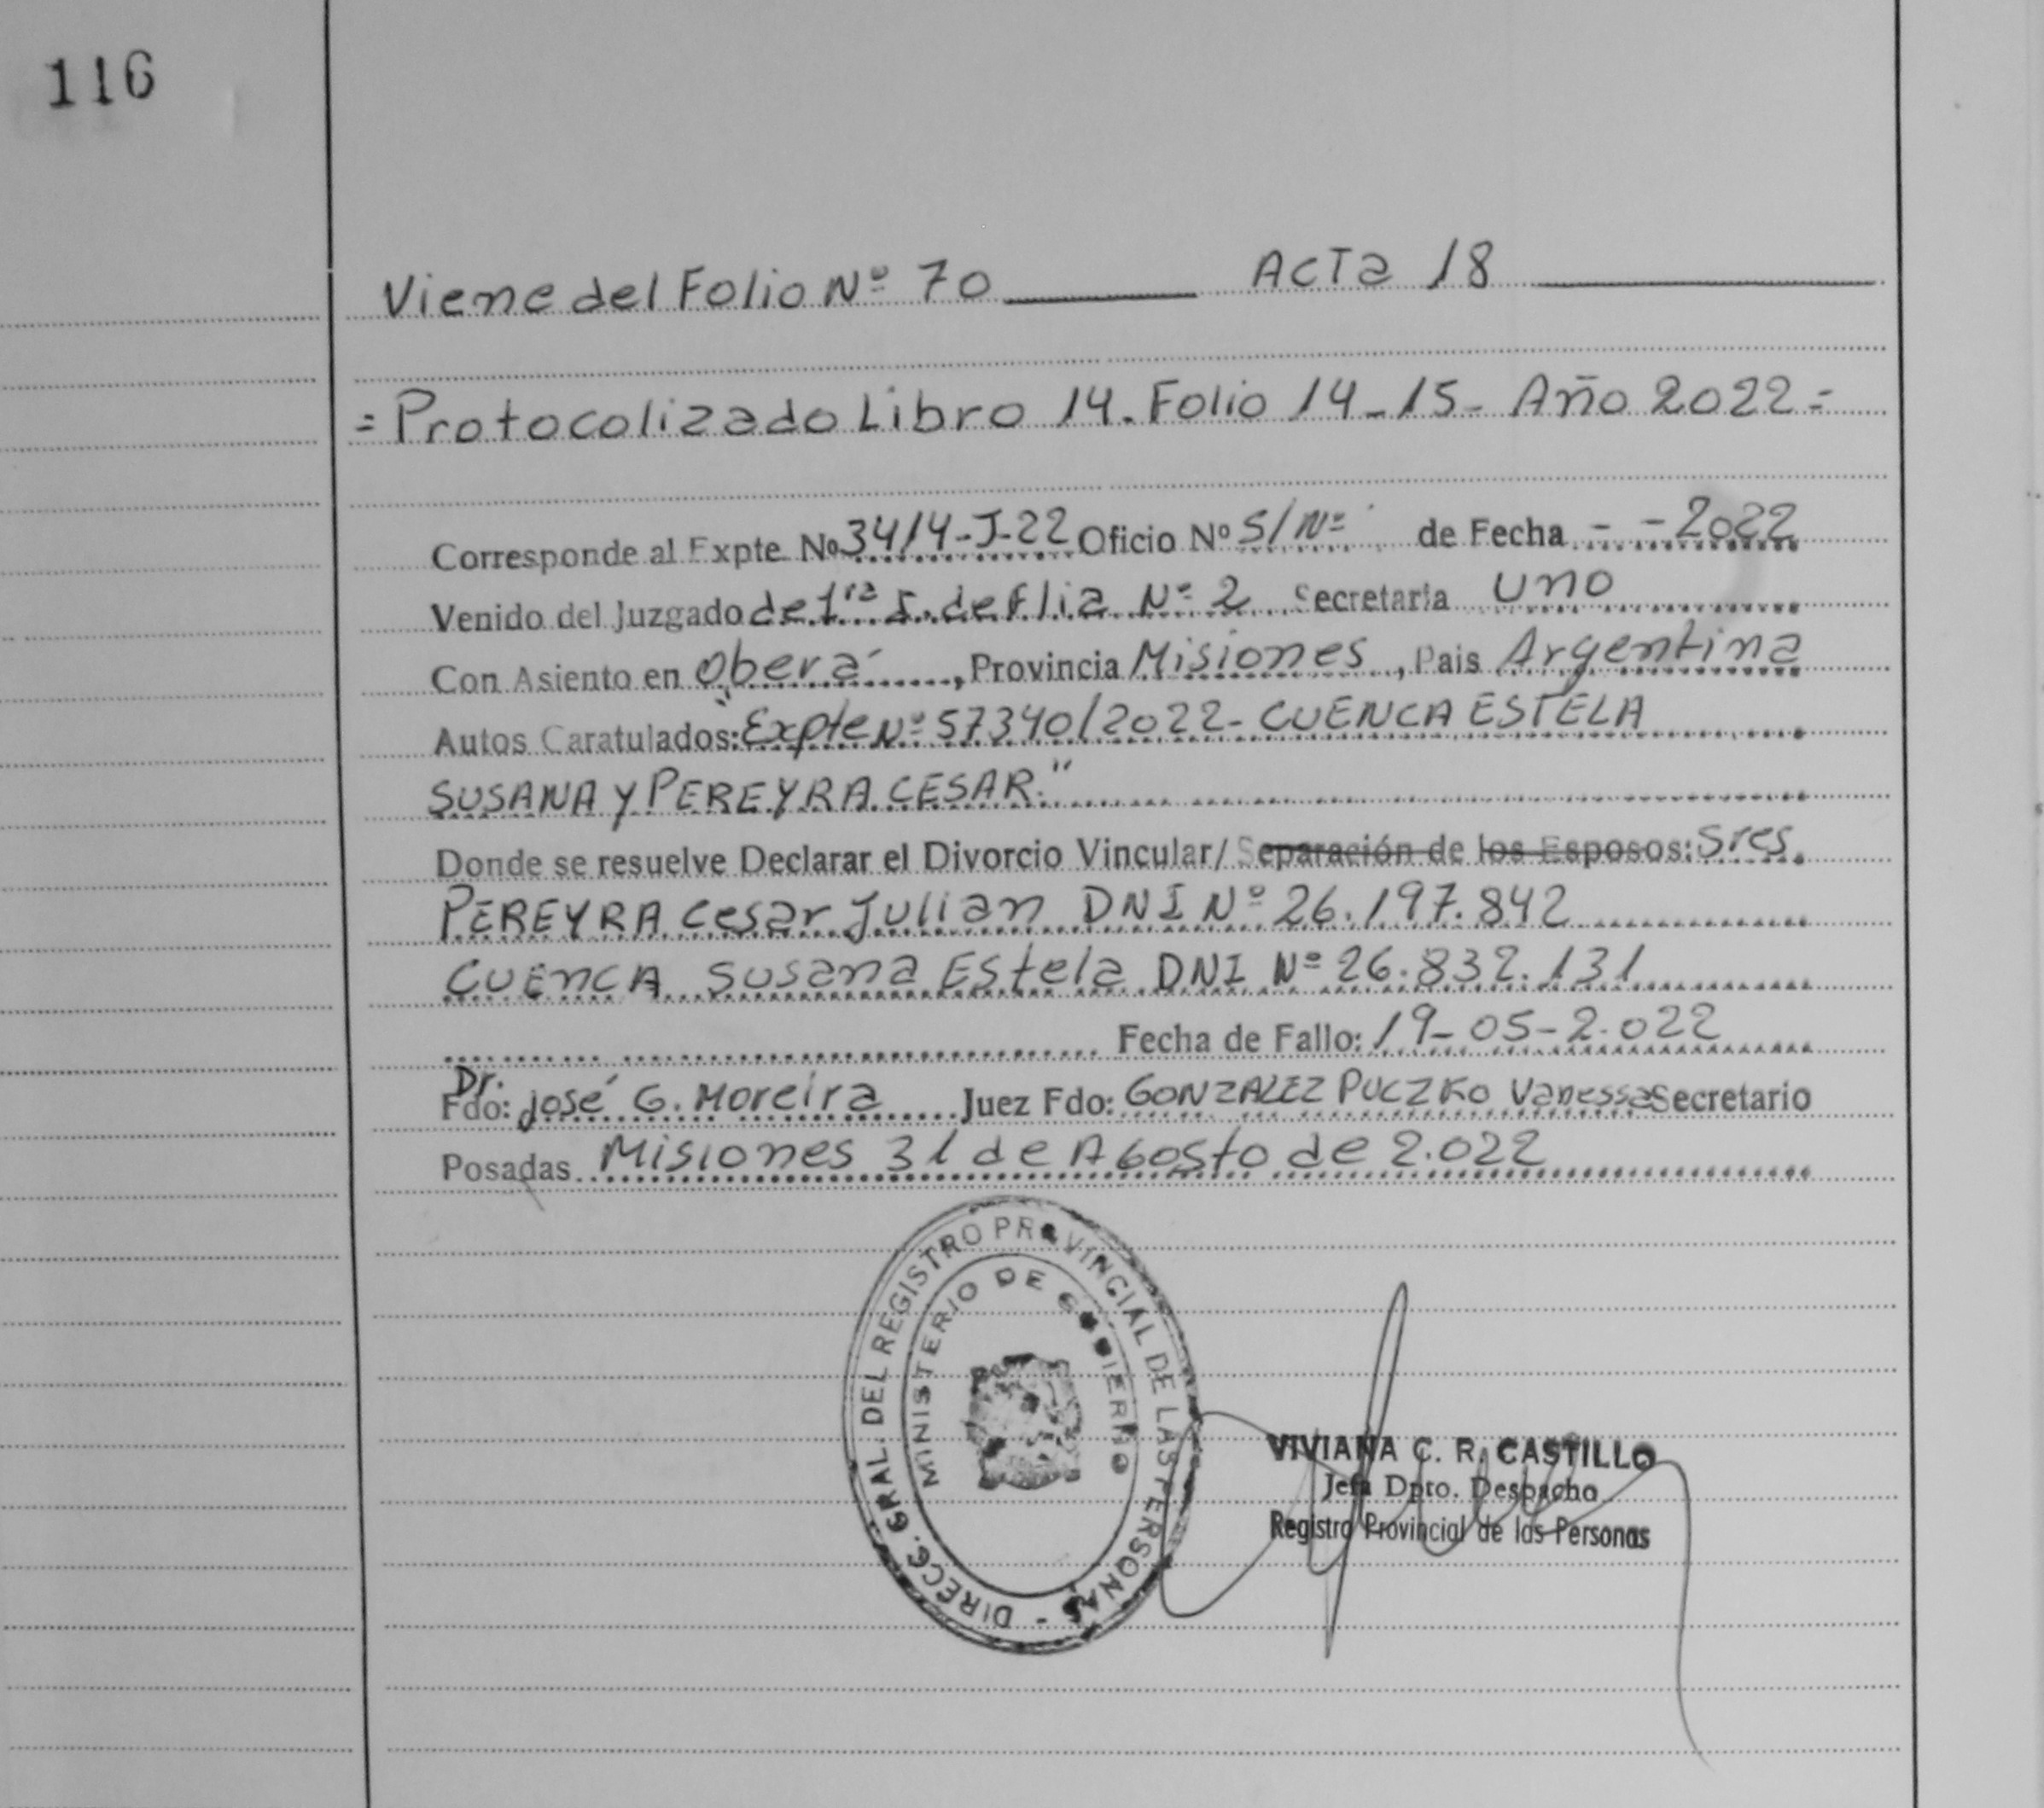 116
Viene del Folio Nº 70 ACTa 18
= Protocolizado Libro 14. Folio 14-15- Año 2022 =
Corresponde al Expte Nº 3414-J-22 Oficio Nº S/Nº de Fecha - -2022
Venido del Juzgado de 1ra I. de Flia Nº 2 Secretaria Uno
Con Asiento en Oberá, Provincia Misiones, Pais Argentina
Autos Caratulados: "Expte Nº 57340/2022- CUENCA ESTELA
SUSANA Y PEREYRA CESAR."
Donde se resuelve Declarar el Divorcio Vincular/ Separación de los Esposos: Sres.
PEREYRA Cesar Julian DNI Nº 26.197.842
CUENCA Susana Estela DNI Nº 26.832.131
Fecha de Fallo: 19-05-2.022
Fdo: Dr. José G. Moreira Juez Fdo: GONZALEZ PUCZKO Vanessa Secretario
Posadas Misiones 31 de Agosto de 2.022
DIRECC. GRAL. DEL REGISTRO PROVINCIAL DE LAS PERSONAS -
MINISTERIO DE GOBIERNO
VIVIANA C. R. CASTILLO
Jefa Dpto. Despacho
Registro Provincial de las Personas